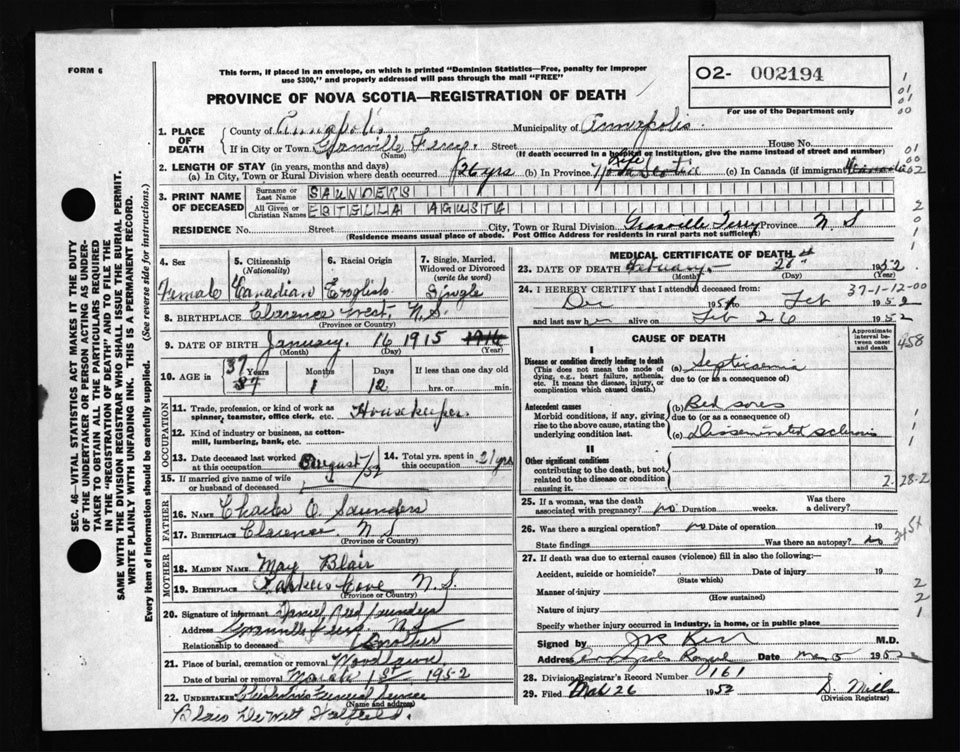 FORM 6
This form, if placed in an envelope, on which is printed "Dominion Statistics—Free, penalty for improper
use $300," and properly addressed will pass through the mail "FREE"
O2- 002194
For use of the Department only
PROVINCE OF NOVA SCOTIA—REGISTRATION OF DEATH
1. PLACE OF DEATH
County of Annapolis Municipality of Annapolis
If in City or Town Granville Ferry Street House No.
(Name) (If death occurred in hospital or institution, give name instead of street and number)
2. LENGTH OF STAY (in years, months and days)
(a) In City, Town or Rural Division where death occurred 26 yrs (b) In Province Life Nova Scotia (c) In Canada (if immigrant)
3. PRINT NAME OF DECEASED
Surname or Last Name SAUNDERS
All Given or Christian Names ESTELLA AGUSTA
RESIDENCE No. Street City, Town or Rural Division Granville Ferry Province N. S
(Residence means usual place of abode. Post Office Address for residents in rural parts not sufficient)
4. Sex
Female
5. Citizenship
(Nationality)
Canadian
6. Racial Origin
English
7. Single, Married, Widowed or Divorced
(write the word)
Single
8. BIRTHPLACE Clarence West, N. S.
(Province or Country)
9. DATE OF BIRTH January. 16 1915 1914
(Month) (Day) (Year)
10. AGE in 37 Years 1 Months 12 Days If less than one day
37
hrs. or min.
OCCUPATION
11. Trade, profession, or kind of work as spinner, teamster, office clerk, etc. Housekeeper.
12. Kind of industry or business, as cotton-mill, lumbering, bank, etc.
13. Date deceased last worked at this occupation August/52
14. Total yrs. spent in this occupation 21 yrs
15. If married give name of wife or husband of deceased
FATHER
16. Name Charles O. Saunders
17. Birthplace Clarence N. S.
(Province or Country)
MOTHER
18. MAIDEN NAME May Blair
19. BIRTHPLACE Parkers Cove N. S.
(Province or Country)
20. Signature of informant Daniel Reed Saunders
Address Granville Ferry N. S
Relationship to deceased Brother
21. Place of burial, cremation or removal Woodlawn
Date of burial or removal March 1st 1952
22. UNDERTAKER Funeral Service
(Name and address)
SEC. 46—VITAL STATISTICS ACT MAKES IT THE DUTY
OF THE UNDERTAKER OR PERSON ACTING AS UNDER-
TAKER TO OBTAIN ALL THE PARTICULARS REQUIRED
IN THE "REGISTRATION OF DEATH" AND TO FILE THE
SAME WITH THE DIVISION REGISTRAR WHO SHALL ISSUE THE BURIAL PERMIT.
WRITE PLAINLY WITH UNFADING INK. THIS IS A PERMANENT RECORD.
Every item of information should be carefully supplied. (See reverse side for instructions.)
MEDICAL CERTIFICATE OF DEATH
23. DATE OF DEATH February 26th 1952
(Month) (Day) (Year)
24. I HEREBY CERTIFY that I attended deceased from: 37-1-12-00
Dec 1951 to Feb 1952
and last saw her alive on Feb 26 1952
CAUSE OF DEATH
Approximate interval between onset and death
458
I
Disease or condition directly leading to death
(This does not mean the mode of dying, e.g., heart failure, asthenia, etc. It means the disease, injury, or complication which caused death.)
(a) Septicemia
due to (or as a consequence of)
Antecedent causes
Morbid conditions, if any, giving rise to the above cause, stating the underlying condition last.
(b) Bed sores
due to (or as a consequence of)
(c) Disseminated sclerosis
II
Other significant conditions
contributing to the death, but not related to the disease or condition causing it.
2-28-2
25. If a woman, was the death associated with pregnancy? no Duration weeks. Was there a delivery?
26. Was there a surgical operation? no Date of operation 19
State findings Was there an autopsy? no
345X
27. If death was due to external causes (violence) fill in also the following:—
Accident, suicide or homicide? Date of injury 19
(State which)
Manner of injury
(How sustained)
Nature of injury
Specify whether injury occurred in industry, in home, or in public place
Signed by M.D.
Address Annapolis Royal Date Mar 5 1952
28. Division Registrar's Record Number 161
29. Filed Mar 26 1952 D. Mills
(Division Registrar)